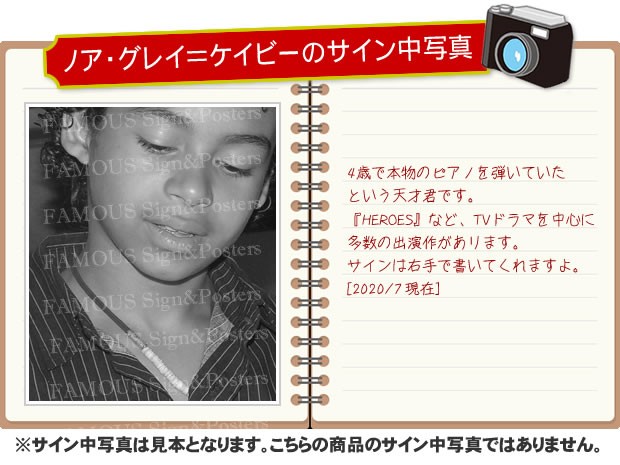 ノア・グレイ=ケイビーのサイン中写真
FAMOUS Sign&Posters
FAMOUS Sign&Posters
FAMOUS Sign&Posters
FAMOUS Sign&Posters
FAMOUS Sign&Posters
FAMOUS Sign&Posters
FAMOUS Sign&Posters
4歳で本物のピアノを弾いていた
という天才君です。
『HEROES』など、TVドラマを中心に
多数の出演作があります。
サインは右手で書いてくれますよ。
[2020/7 現在]
※サイン中写真は見本となります。こちらの商品のサイン中写真ではありません。